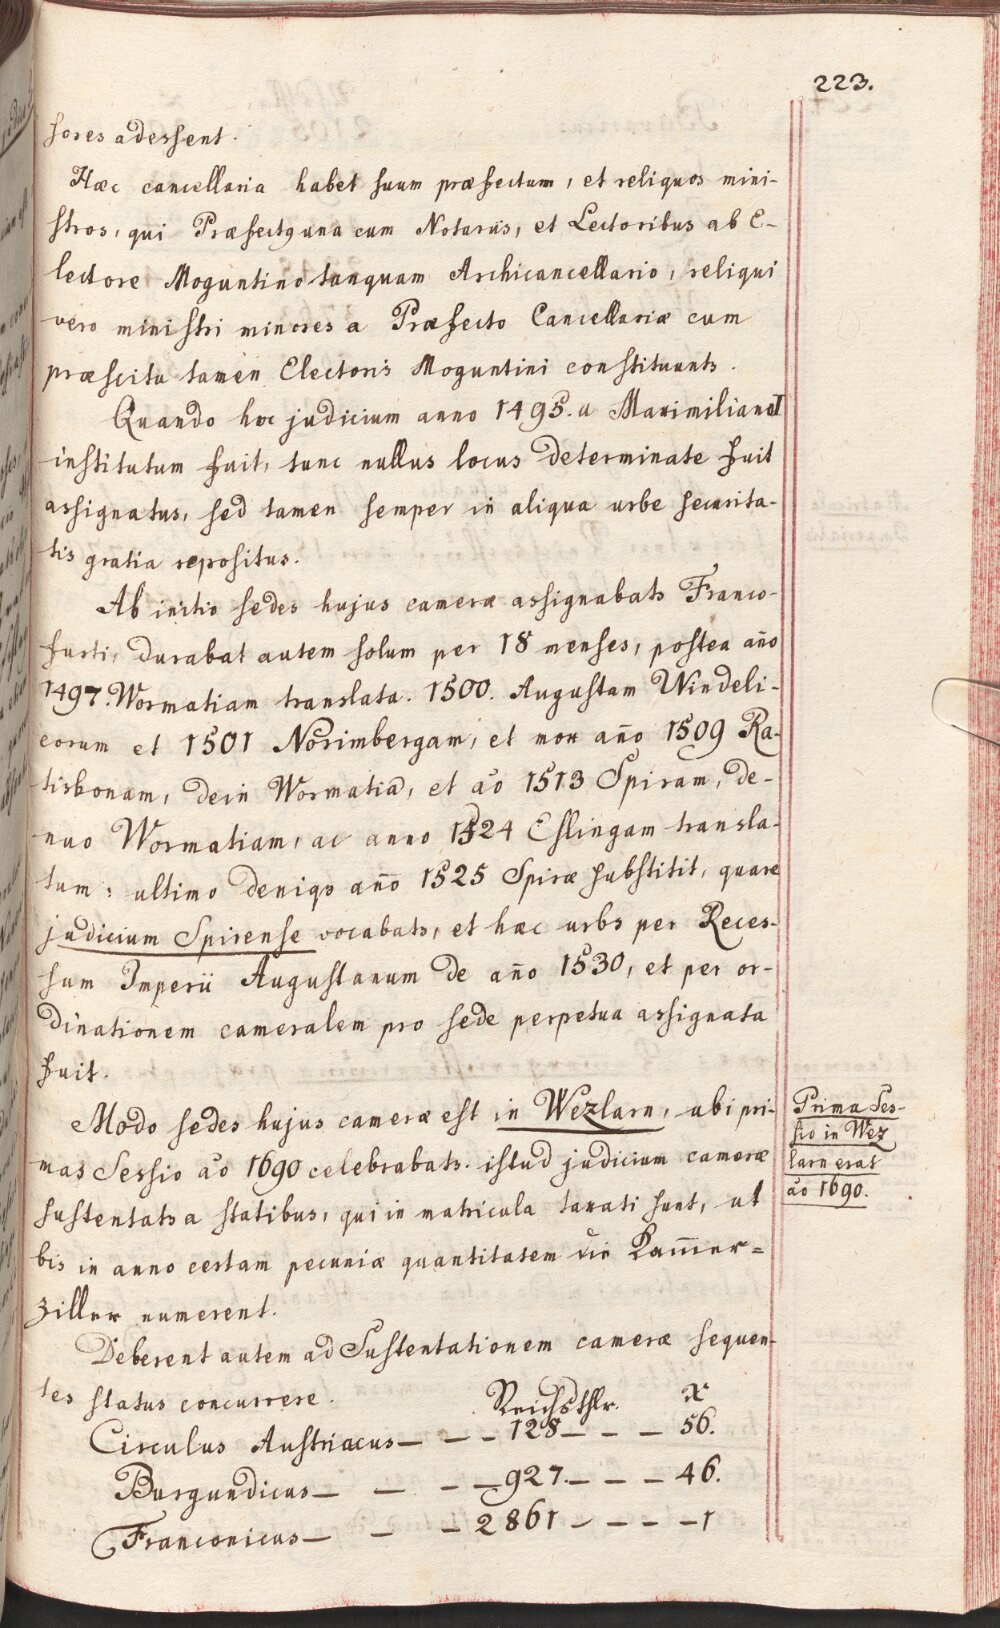 223.
sores adessent.
Hæc cancellaria habet suum præfectum, et reliquos mini-
stros, qui Præfectꝰ una cum Notariis, et Lectoribus ab E-
lectore Moguntino tanquam Archicancellario, reliqui
vero ministri minores a Præfecto Cancellariæ cum
præscitu tamen Electoris Moguntini constituunts.
Quando hoc judicium anno 1495. a Maximiliano I
institutum fuit, tunc nullus locus determinate fuit
assignatus, sed tamen semper in aliqua urbe securita-
tis gratia repositus.
Ab initio sedes hujus cameræ assignabats Franco-
furti, durabat autem solum per 18 menses, postea año
1497. Wormatiam translata. 1500. Augustam Windeli-
corum et 1501 Norimbergam, et mox año 1509 Ra-
tisbonam, dein Wormatiā, et aō 1513 Spiram, de-
nuo Wormatiam, ac anno 1524 Eslingam transla-
tum: ultimo deniqs año 1525 Spiræ substitit, quare
judicium Spirense vocabats, et hæc urbs per Reces-
sum Imperii Augustanum de año 1530, et per or-
dinationem cameralem pro sede perpetua assignata
fuit.
Modo sedes hujus cameræ est in Wezlarn, ubi pri-
mas Sessio aō 1690 celebrabats. istud judicium cameræ
sustentats a statibus, qui in matricula taxati sunt, ut
bis in anno certam pecuniæ quantitatem die Kam̄er=
ziller numerent.
Deberent autem ad Sustentationem cameræ sequen-
tes status concurrere. Reichsthlr. x
Circulus Austriacus — — — 128 — — — 56.
Burgundicus — — — — 927 — — — 46.
Franconicus — — — 2861 — — — — 1
Prima Ses-
sio in Wez
larn erat
aō 1690.